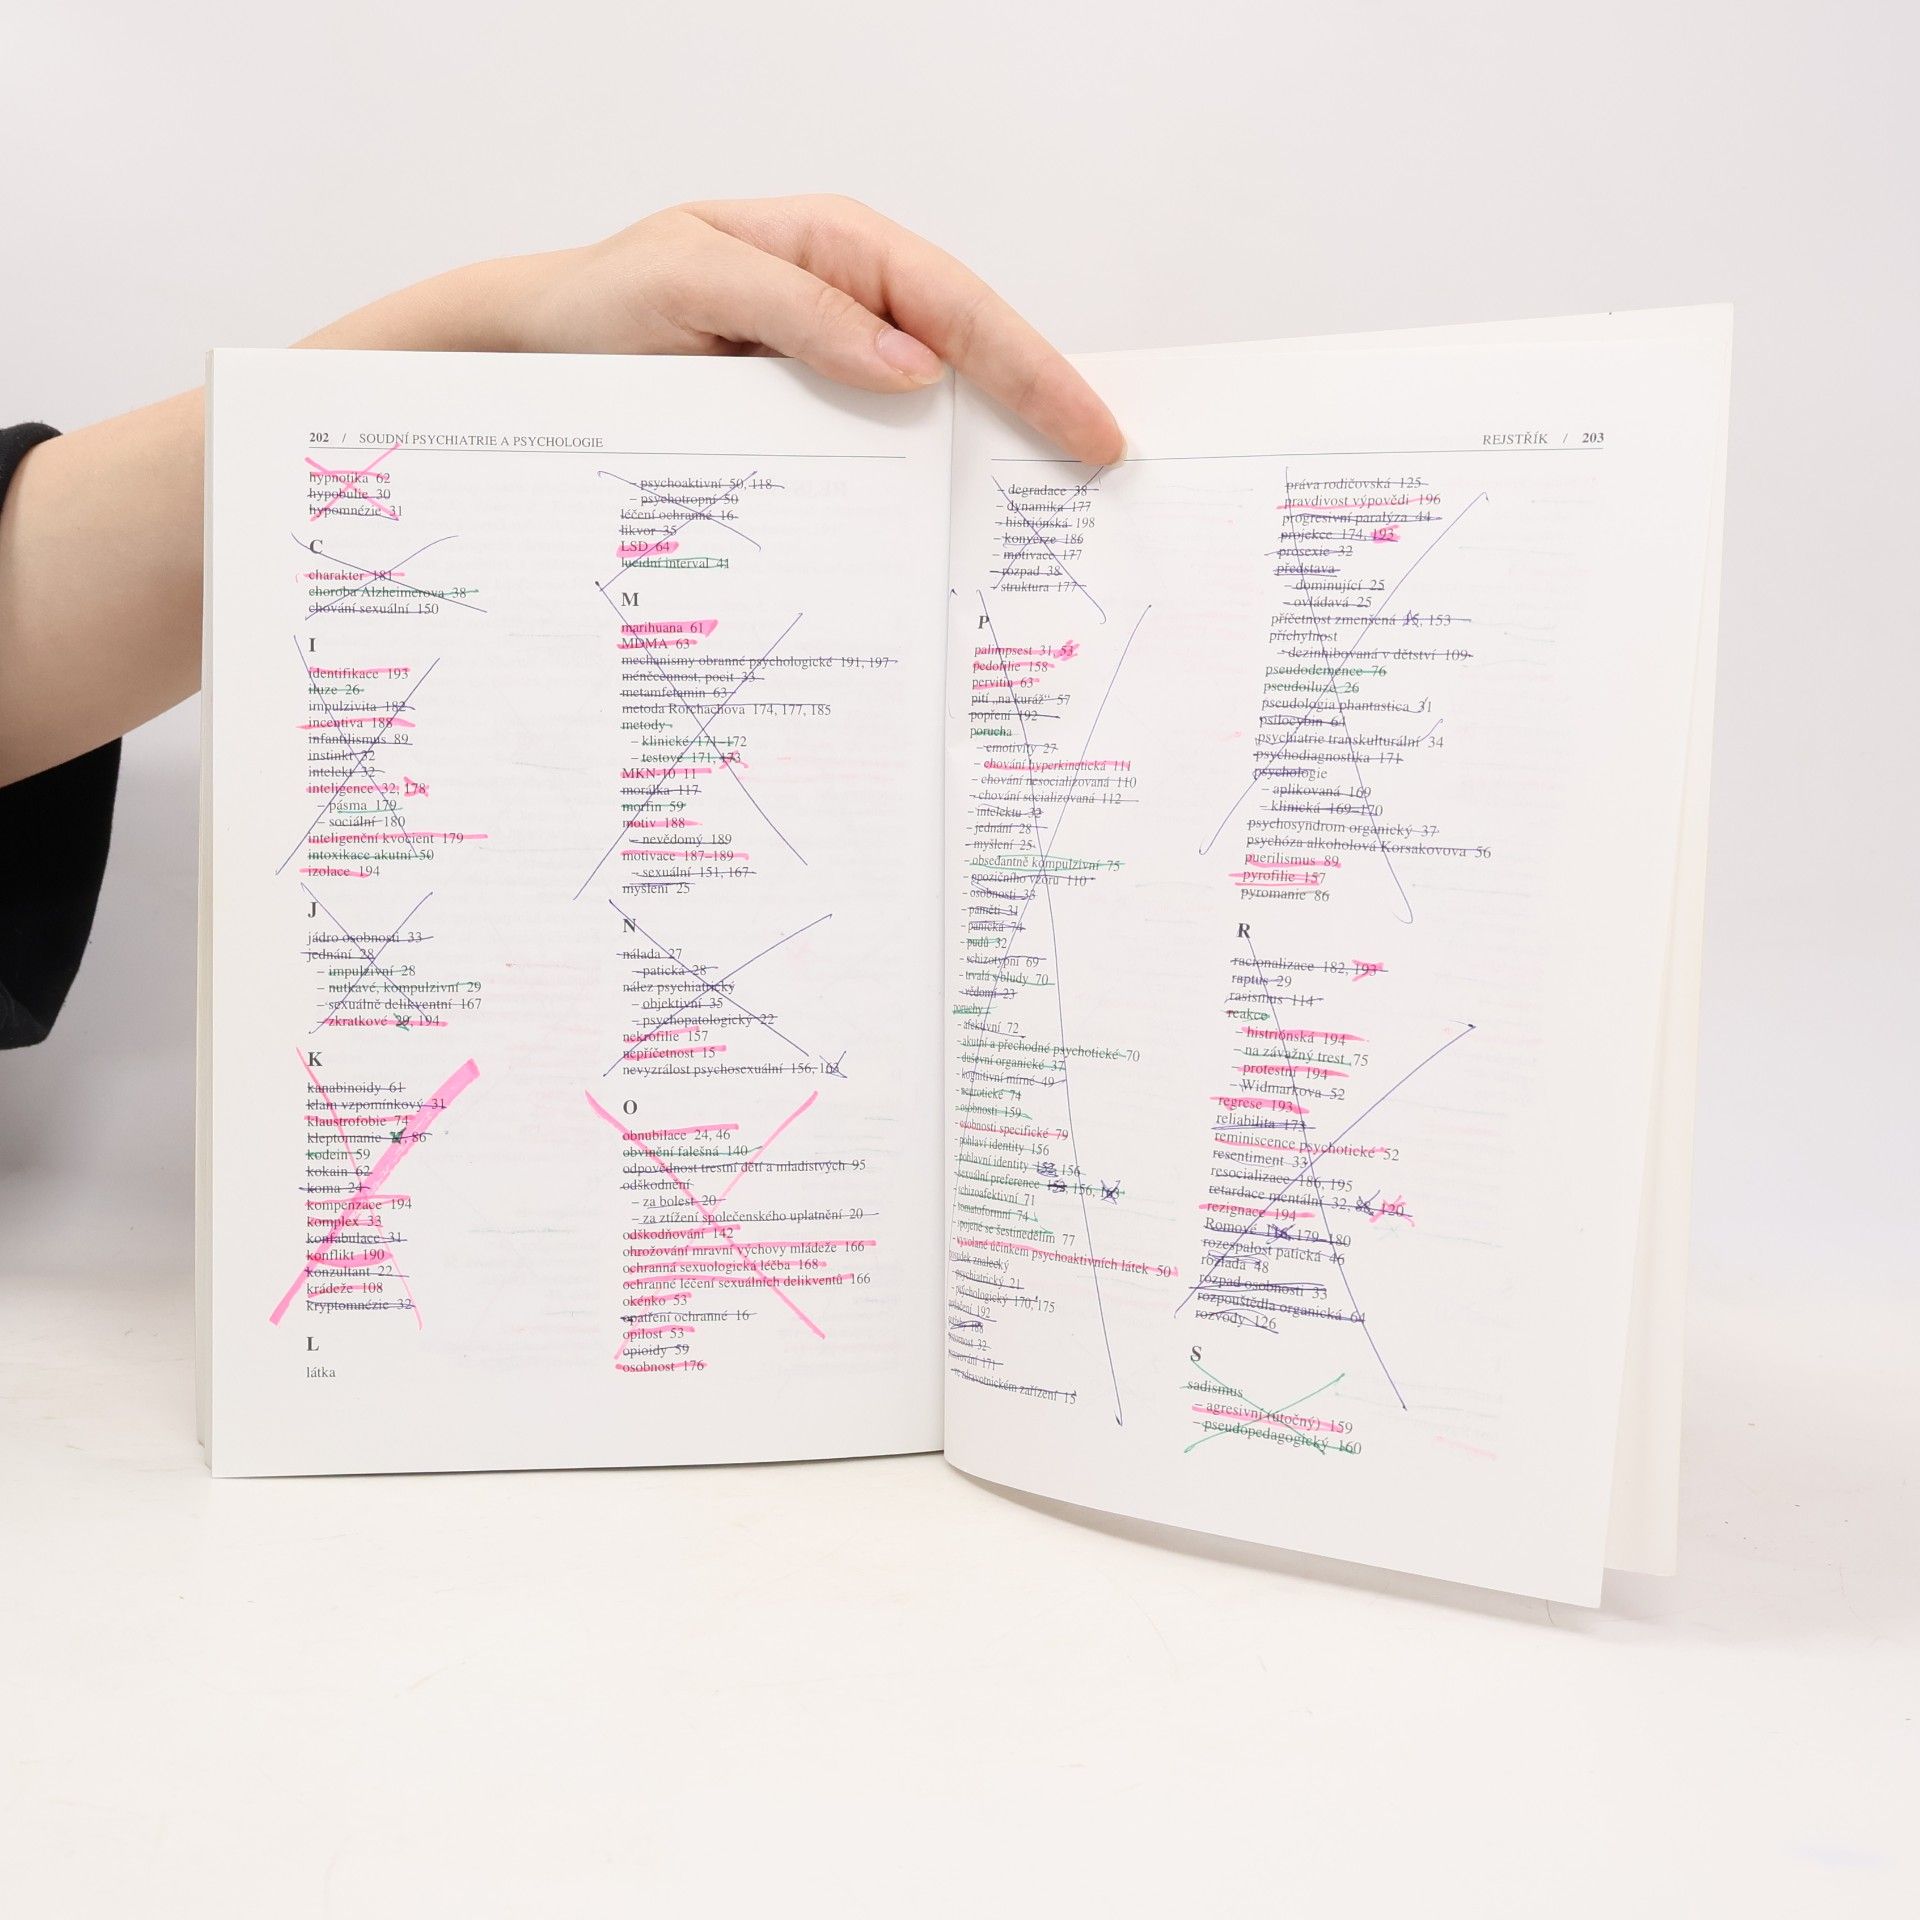 202 / SOUDNÍ PSYCHIATRIE A PSYCHOLOGIE
hypnotika 62
hypobulie 30
hypomnézie 31
C
charakter 181
choroba Alzheimerova 38
chování sexuální 150
I
identifikace 193
iluze 26
impulzivita 182
incentiva 188
infantilismus 89
instinkt 32
intelekt 32
inteligence 32, 178
– pásma 179
– sociální 180
inteligenční kvocient 179
intoxikace akutní 50
izolace 194
J
jádro osobnosti 33
jednání 28
– impulzivní 28
– nutkavé, kompulzivní 29
– sexuálně delikventní 167
– zkratkové 29, 194
K
kanabinoidy 61
klam vzpomínkový 31
klaustrofobie 74
kleptomanie , 86
kodein 59
kokain 62
koma 24
kompenzace 194
komplex 33
konfabulace 31
konflikt 190
konzultant 22
krádeže 108
kryptomnézie 32
L
látka
– psychoaktivní 50, 118
– psychotropní 50
léčení ochranné 16
likvor 35
LSD 64
lucidní interval 41
M
marihuana 61
MDMA 63
mechanismy obranné psychologické 191, 197
méněcennost, pocit 33
metamfetamin 63
metoda Rorchachova 174, 177, 185
metody
– klinické 171–172
– testové 171, 173
MKN-10 11
morálka 117
morfin 59
motiv 188
– nevědomý 189
motivace 187–189
– sexuální 151, 167
myšlení 25
N
nálada 27
– patická 28
nález psychiatrický
– objektivní 35
– psychopatologický 22
nekrofilie 157
nepříčetnost 15
nevyzrálost psychosexuální 156, 163
O
obnubilace 24, 46
obvinění falešná 140
odpovědnost trestní dětí a mladistvých 95
odškodnění
– za bolest 20
– za ztížení společenského uplatnění 20
odškodňování 142
ohrožování mravní výchovy mládeže 166
ochranná sexuologická léčba 168
ochranné léčení sexuálních delikventů 166
okénko 53
opatření ochranné 16
opilost 53
opioidy 59
osobnost 176
REJSTŘÍK / 203
– degradace 38
– dynamika 177
– histriónská 198
– konverze 186
– motivace 177
– rozpad 38
– struktura 177
P
palimpsest 31, 53
pedofilie 158
pervitin 63
pití „na kuráž“ 57
popření 192
porucha
– emotivity 27
– chování hyperkinetická 111
– chování nesocializovaná 110
– chování socializovaná 112
– intelektu 32
– jednání 28
– myšlení 25
– obsedantně kompulzivní 75
– opozičního vzoru 110
– osobnosti 33
– paměti 31
– panická 74
– pudů 32
– schizotypní 69
– trvalá s bludy 70
– vědomí 23
poruchy
– afektivní 72
– akutní a přechodné psychotické 70
– duševní organické 37
– kognitivní mírné 49
– neurotické 74
– osobnosti 159
– osobnosti specifické 79
– pohlaví identity 156
– pohlavní identity 152, 156
– sexuální preference 153, 156, 163
– schizoafektivní 71
– somatoformní 74
– spojené se šestinedělím 77
– vyvolané účinkem psychoaktivních látek 50
posudek znalecký
– psychiatrický 21
– psychologický 170, 175
192
188
32
171
– ve zdravotnickém zařízení 15
práva rodičovská 125
pravdivost výpovědi 196
progresivní paralýza 44
projekce 174, 193
prosexie 32
představa
– dominující 25
– ovládavá 25
příčetnost zmenšená 15, 153
příchylnost
– dezinhibovaná v dětství 109
pseudodemence 76
pseudoiluze 26
pseudologia phantastica 31
psilocybin 64
psychiatrie transkulturální 34
psychodiagnostika 171
psychologie
– aplikovaná 169
– klinická 169–170
psychosyndrom organický 37
psychóza alkoholová Korsakovova 56
puerilismus 89
pyrofilie 157
pyromanie 86
R
racionalizace 182, 193
raptus 29
rasismus 114
reakce
– histriónská 194
– na závažný trest 75
– protestní 194
– Widmarkova 52
regrese 193
reliabilita 173
reminiscence psychotické 52
resentiment 33
resocializace 186, 195
retardace mentální 32, 88, 120
rezignace 194
Romové 116, 179–180
rozespalost patická 46
rozlada 48
rozpad osobnosti 33
rozpouštědla organická 64
rozvody 126
S
sadismus
– agresivní (útočný) 159
– pseudopedagogický 160